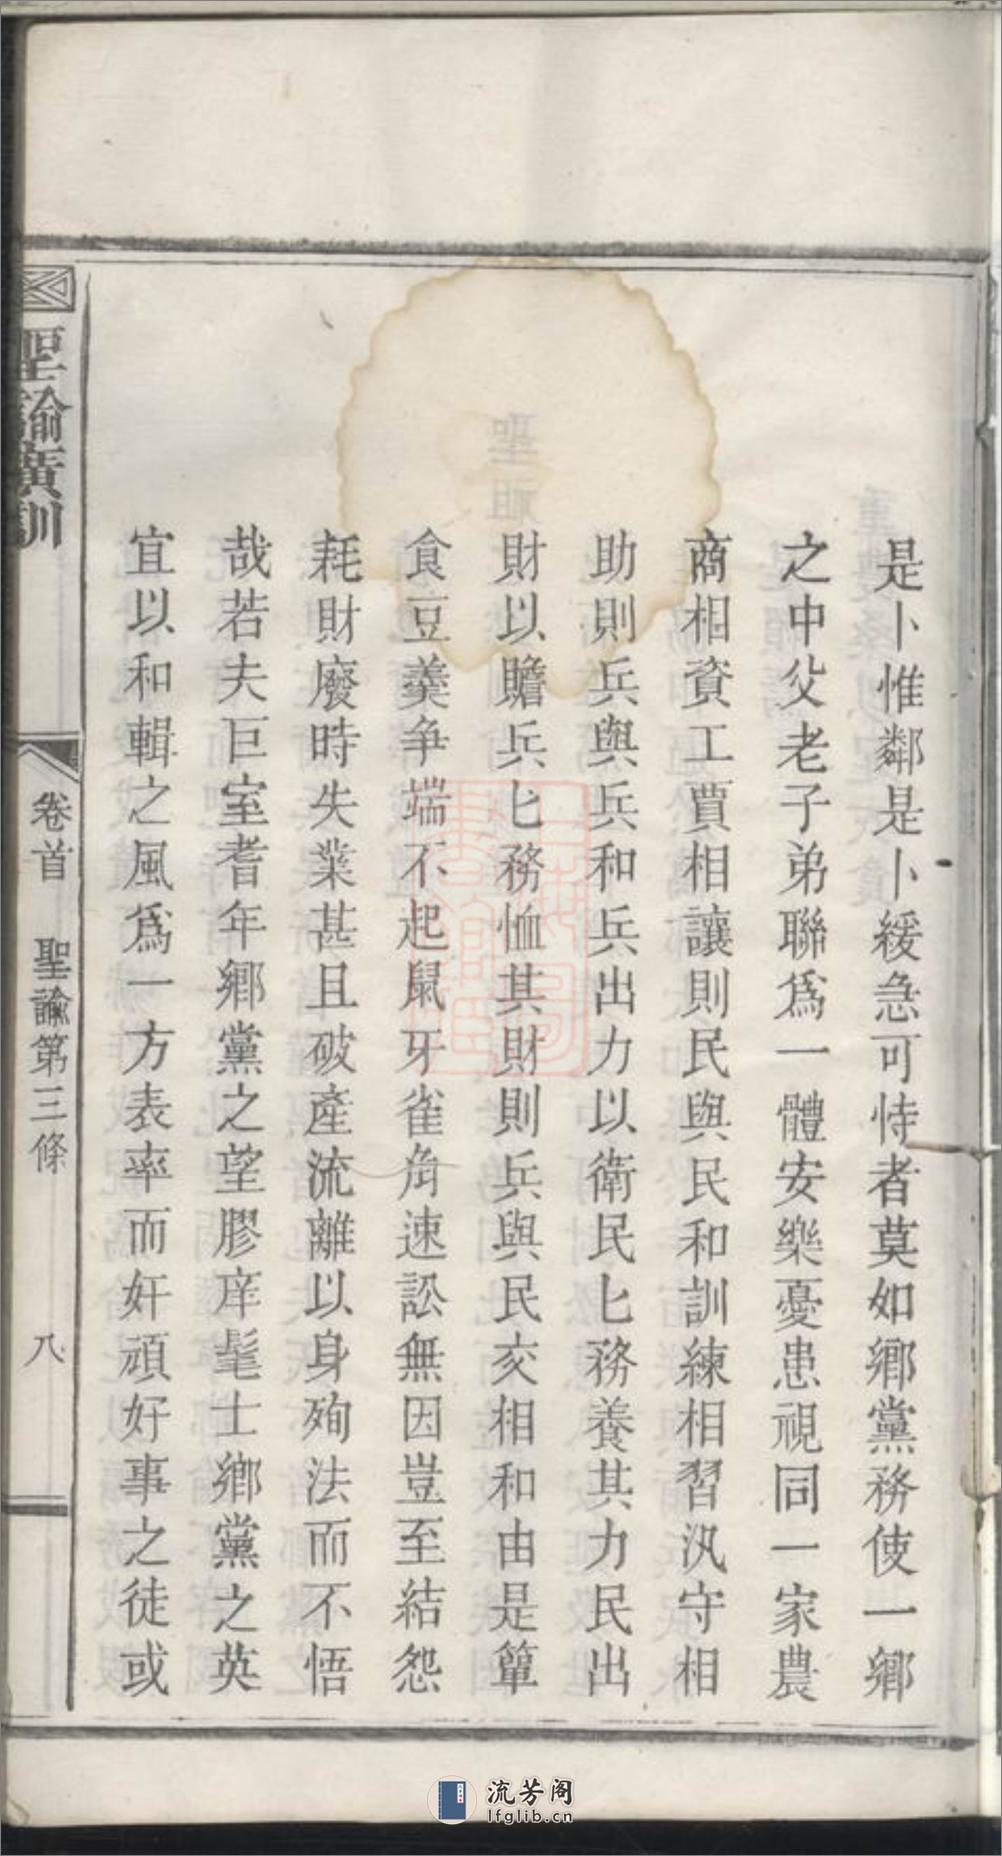 是卜惟鄰是卜緩急可恃者莫如鄉黨務使一鄉
之中父老子弟聯爲一體安樂憂患視同一家農
商相資工賈相讓則民與民和訓練相習汛守相
助則兵與兵和兵出力以衛民匕務養其力民出
財以贍兵匕務恤其財則兵與民交相和由是簞
食豆羹爭端不起鼠牙雀角速訟無因豈至結怨
耗財廢時失業甚且破產流離以身殉法而不悟
哉若夫巨室耆年鄉黨之望膠庠髦士鄉黨之英
宜以和輯之風爲一方表率而奸頑好事之徒或
聖諭廣訓
卷首 聖諭第三條 八
流芳阁
lfglib.cn